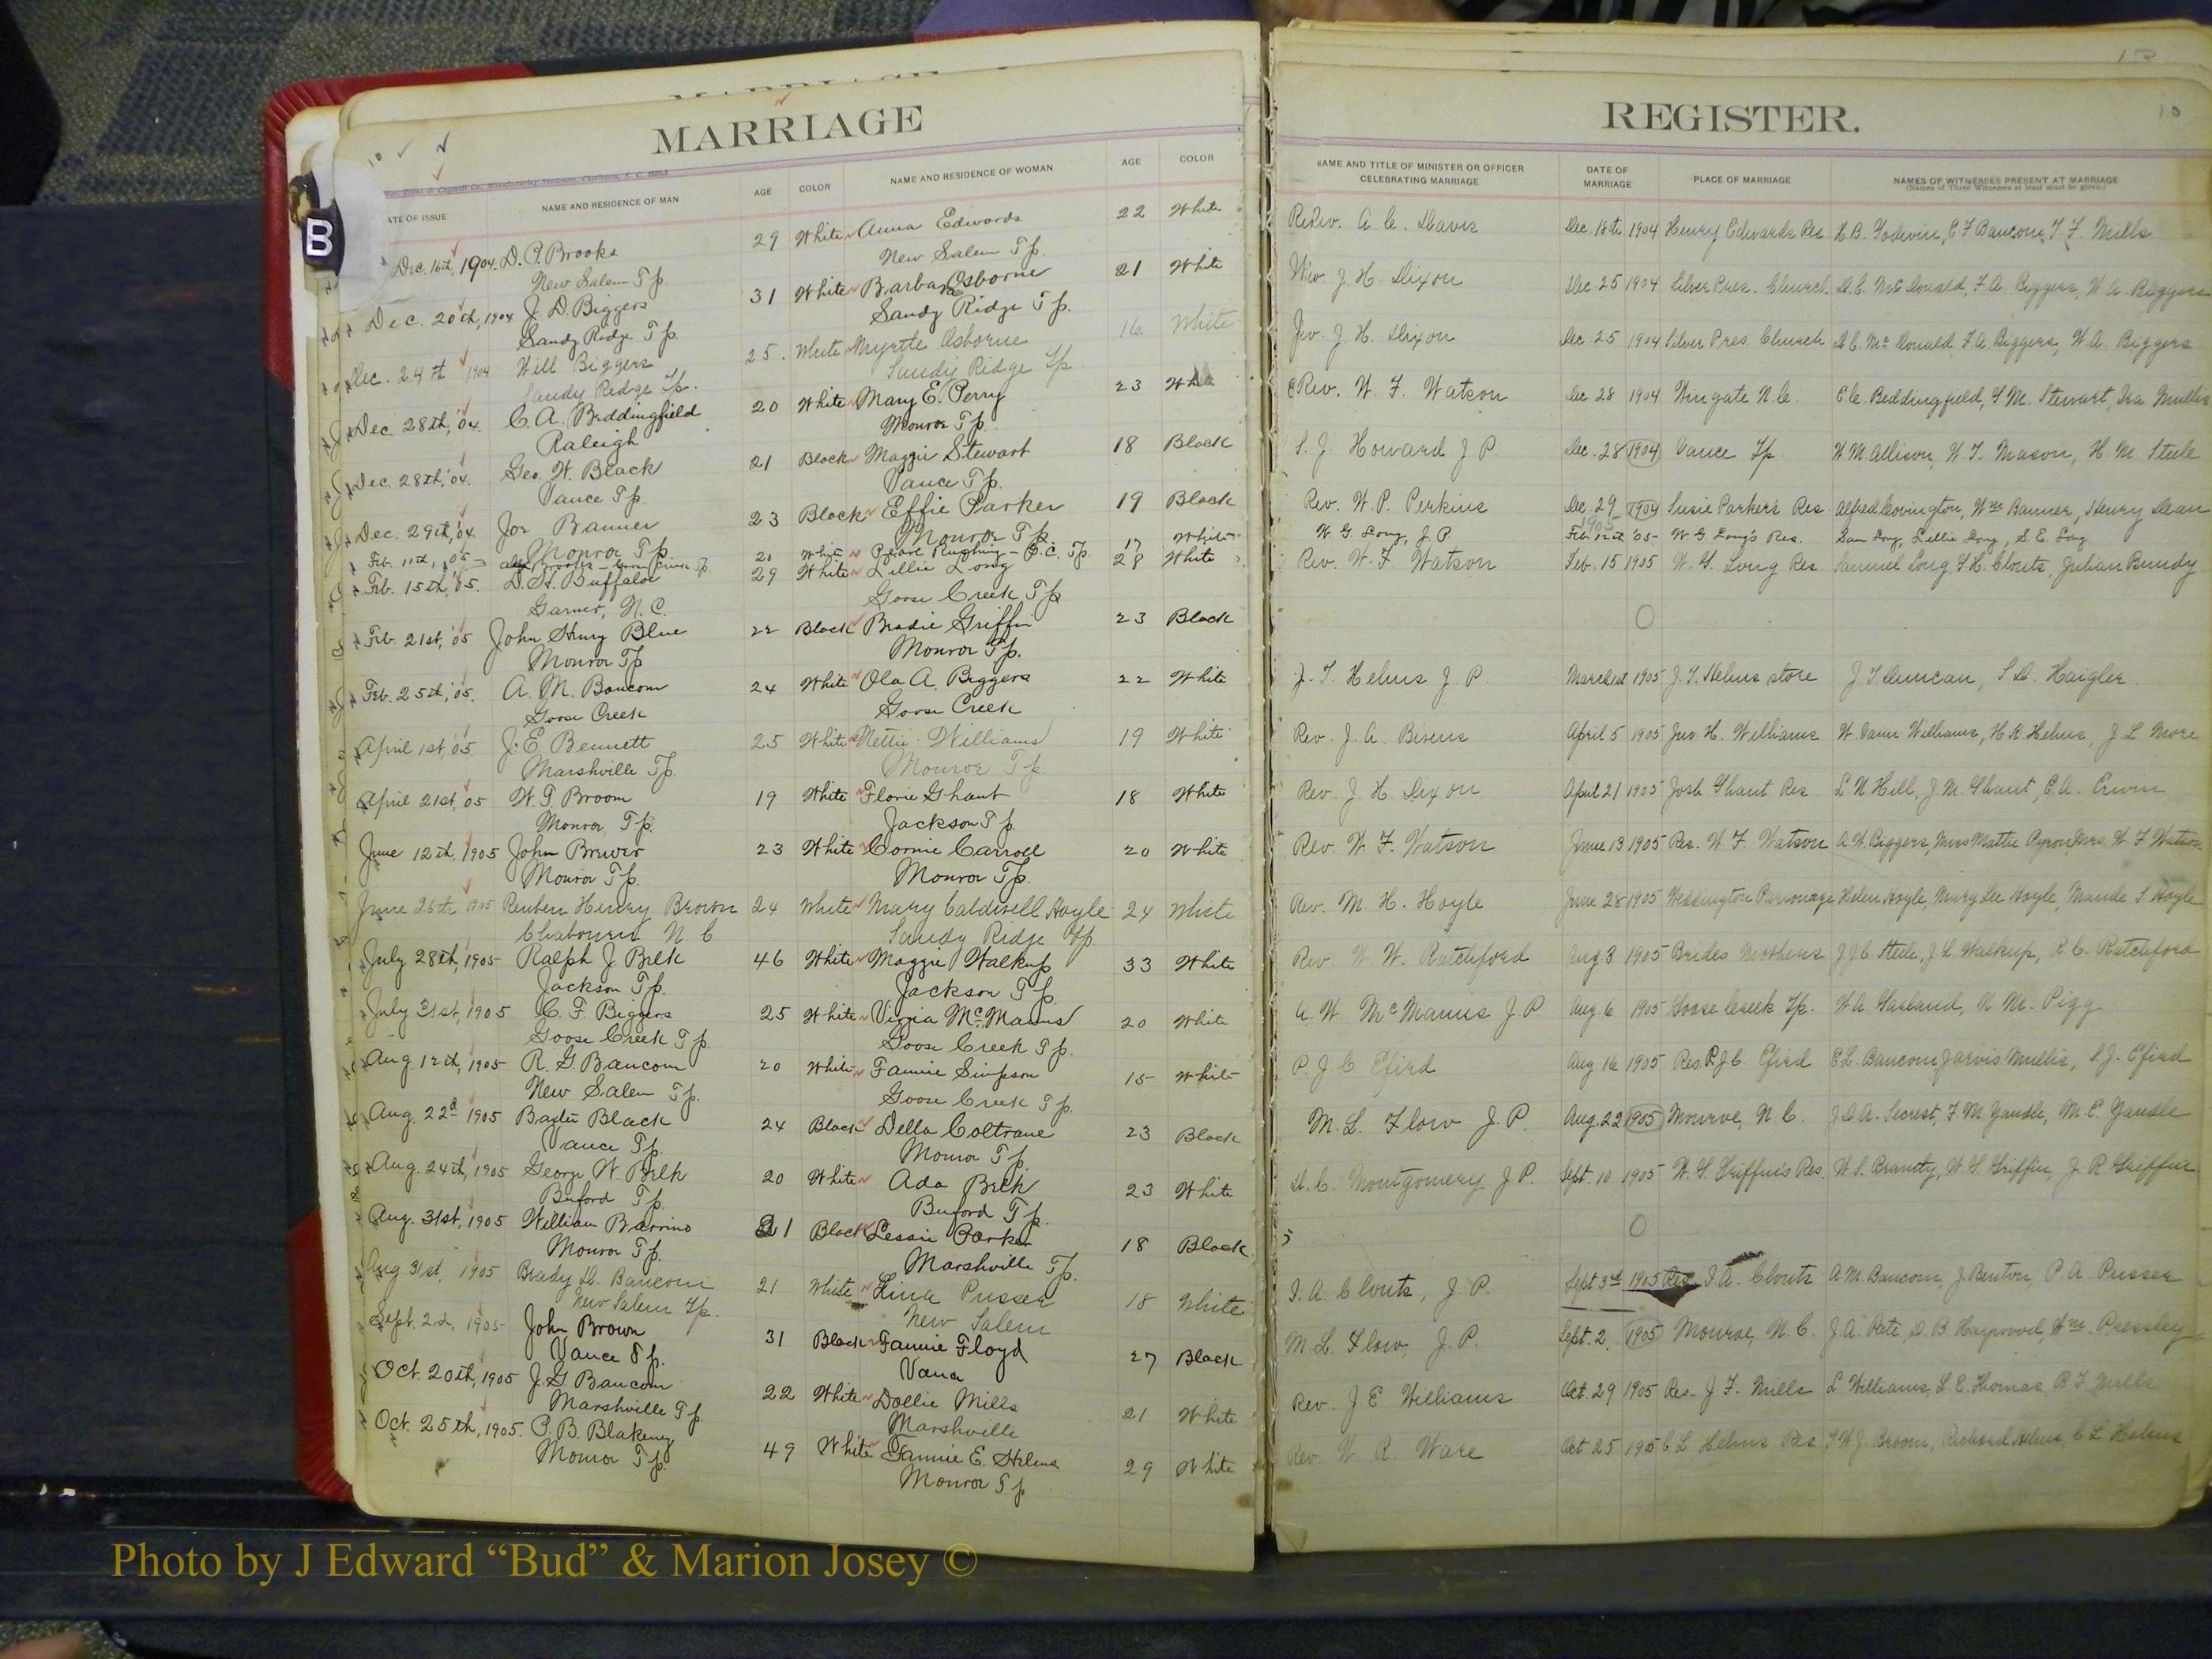 MARRIAGE
DATE OF ISSUE NAME AND RESIDENCE OF MAN AGE COLOR NAME AND RESIDENCE OF WOMAN AGE COLOR
B
Dec. 16th, 1904. D. P. Brooks 29 White Anna Edwards 22 White
New Salem Tp. New Salem Tp.
Dec. 20th, 1904 J. D. Biggers 31 White Barbara Osborne 21 White
Sandy Ridge Tp. Sandy Ridge Tp.
Dec. 24th 1904 Will Biggers 25. White Myrtle Osborne 16 White
Sandy Ridge Tp. Sandy Ridge Tp.
Dec. 28th, '04. C. A. Beddingfield 20 White Mary E. Perry 23 White
Raleigh Monroe Tp.
Dec. 28th, '04. Geo. W. Black 21 Black Maggie Stewart 18 Black
Vance Tp. Vance Tp.
Dec. 29th, '04. Joe Banner 23 Black Effie Parker 19 Black
Monroe Tp. Monroe Tp.
Feb. 11th, '05 Brooks 20 White Pearl Rushing - G. C. Tp. 17 White
Feb. 15th, '05. D. H. Buffaloe 29 White Lillie Long 28 White
Garner, N. C. Goose Creek Tp
Feb. 21st, '05 John Henry Blue 22 Black Bradie Griffin 23 Black
Monroe Tp Monroe Tp.
Feb. 25th, '05. A. M. Baucom 24 White Ola A. Biggers 22 White
Goose Creek Goose Creek
April 1st, '05 J. E. Bennett 25 White Nettie Williams 19 White
Marshville Tp. Monroe Tp.
April 21st, '05 W. G. Broom 19 White Florie Ghant 18 White
Monroe, Tp. Jackson Tp
June 12th, 1905 John Brewer 23 White Cornie Carroll 20 White
Monroe Tp. Monroe Tp.
June 26th 1905 Reuben Henry Brown 24 White Mary Caldwell Hoyle 24 White
Chabourn N C Sandy Ridge Tp.
July 28th, 1905 Ralph J Belk 46 White Maggie Walkup 33 White
Jackson Tp. Jackson Tp.
July 31st, 1905 C. F. Biggers 25 White Virgia McManus 20 White
Goose Creek Tp. Goose Creek Tp.
Aug. 12th, 1905 R. G. Baucom 20 White Fannie Simpson 15 White
New Salem Tp. Goose Creek Tp.
Aug. 22d 1905 Baxter Black 24 Black Della Coltrane 23 Black
Vance Tp. Monroe Tp.
Aug. 24th, 1905 George W. Belk 20 White Ada Belk 23 White
Buford Tp. Buford Tp.
Aug. 31st, 1905 William Barrino 21 Black Lessie Parker 18 Black
Monroe Tp. Marshville Tp.
Aug 31st, 1905 Brady D. Baucom 21 White Lina Pusser 18 White
New Salem Tp. New Salem
Sept. 2nd, 1905 John Brown 31 Black Fannie Floyd 27 Black
Vance Tp. Vance
Oct. 20th, 1905 J. G. Baucom 22 White Dollie Mills 21 White
Marshville Tp. Marshville
Oct. 25th, 1905. P. B. Blakeney 49 White Fannie E. Helms 29 White
Monroe Tp. Monroe Tp
10
REGISTER.
NAME AND TITLE OF MINISTER OR OFFICER CELEBRATING MARRIAGE DATE OF MARRIAGE PLACE OF MARRIAGE NAMES OF WITNESSES PRESENT AT MARRIAGE
(Names of Three Witnesses at least must be given.)
Rev. A. C. Davis Dec. 18th 1904 Henry Edwards Res. H. B. Godwin, E F Baucom, T. F. Mills
Rev. J. H. Dixon Dec 25 1904 Silver Pres. Church D. C. McDonald, F. A. Biggers, W. A. Biggers
Rev. J. H. Dixon Dec 25 1904 Silver Pres. Church D. C. McDonald, F. A. Biggers, W. A. Biggers
Rev. W. F. Watson Dec 28 1904 Wingate N. C. E. C. Beddingfield, S. M. Stewart, Ira Mullis
S. J. Howard J P. Dec. 28 1904 Vance Tp. W M Allison, W. T. Mason, H M Steele
Rev. W. P. Perkins Dec 29 1904 Susie Parker's Res. Alfred Covington, Wm Banner, Henry Dean
W. G. Long, J. P. Feb 12th '05 W G Long's Res. Sam Long, Lillie Long, S. E. Long
Rev. W. F. Watson Feb. 15 1905 W. G. Long Res Samuel Long, S. H. Clouts, Julian Bundy
J. T. Helms J. P. March 1st 1905 J. T. Helms store J. T. Duncan, S. D. Haigler
Rev. J. A. Bivens April 5 1905 Jno. H. Williams W. Vann Williams, H. K. Helms, J. L. More
Rev. J. H Dixon April 21 1905 Josh Ghant Res L. N Hill, J. M. Ghant, E. A. Erwin
Rev. W. F. Watson June 13 1905 Res. W. F. Watson A. W. Biggers, Miss Mattie Pyron, Mrs. W F Watson
Rev. M. H. Hoyle June 28 1905 Weddington Parsonage Helen Hoyle, Mary Lee Hoyle, Maude S Hoyle
Rev. W. W. Ratchford Aug 3 1905 Brides Mothers J. J. C Steele, J. L Walkup, R. C. Ratchford
A. W. McManus J. P Aug 6 1905 Goose Creek Tp. W. A. Garland, N. M. Pigg
P. J C Efird Aug 16 1905 Res. P. J. C. Efird E. L. Baucom, Jarvis Mullis, S. J. Efird
M. L. Flow J. P. Aug. 22 1905 Monroe, N C. J. A. A. Secrest, F M. Yandle, M. C. Yandle
D. C. Montgomery J P. Sept. 10 1905 W. S. Griffin's Res. W. S. Griffin, J. R Griffin
I. A. Clouts, J. P. Sept 3rd 1905 Res I A. Clouts A. M. Baucom, J. Benton, P A Pusser
M. L. Flow, J. P. Sept. 2. 1905 Monroe, N. C. J. A. Pate, D. B. Haywood, Wm. Pressley
Rev. J E Williams Oct. 29 1905 Res. J. F. Mills L Williams, L. E. Thomas, B F Mills
Rev. W. R. Ware Oct 25 1905 C L Helms Res. T. W. J. Broom, Richard Helms, C. L Helms
Photo by J Edward “Bud” & Marion Josey ©